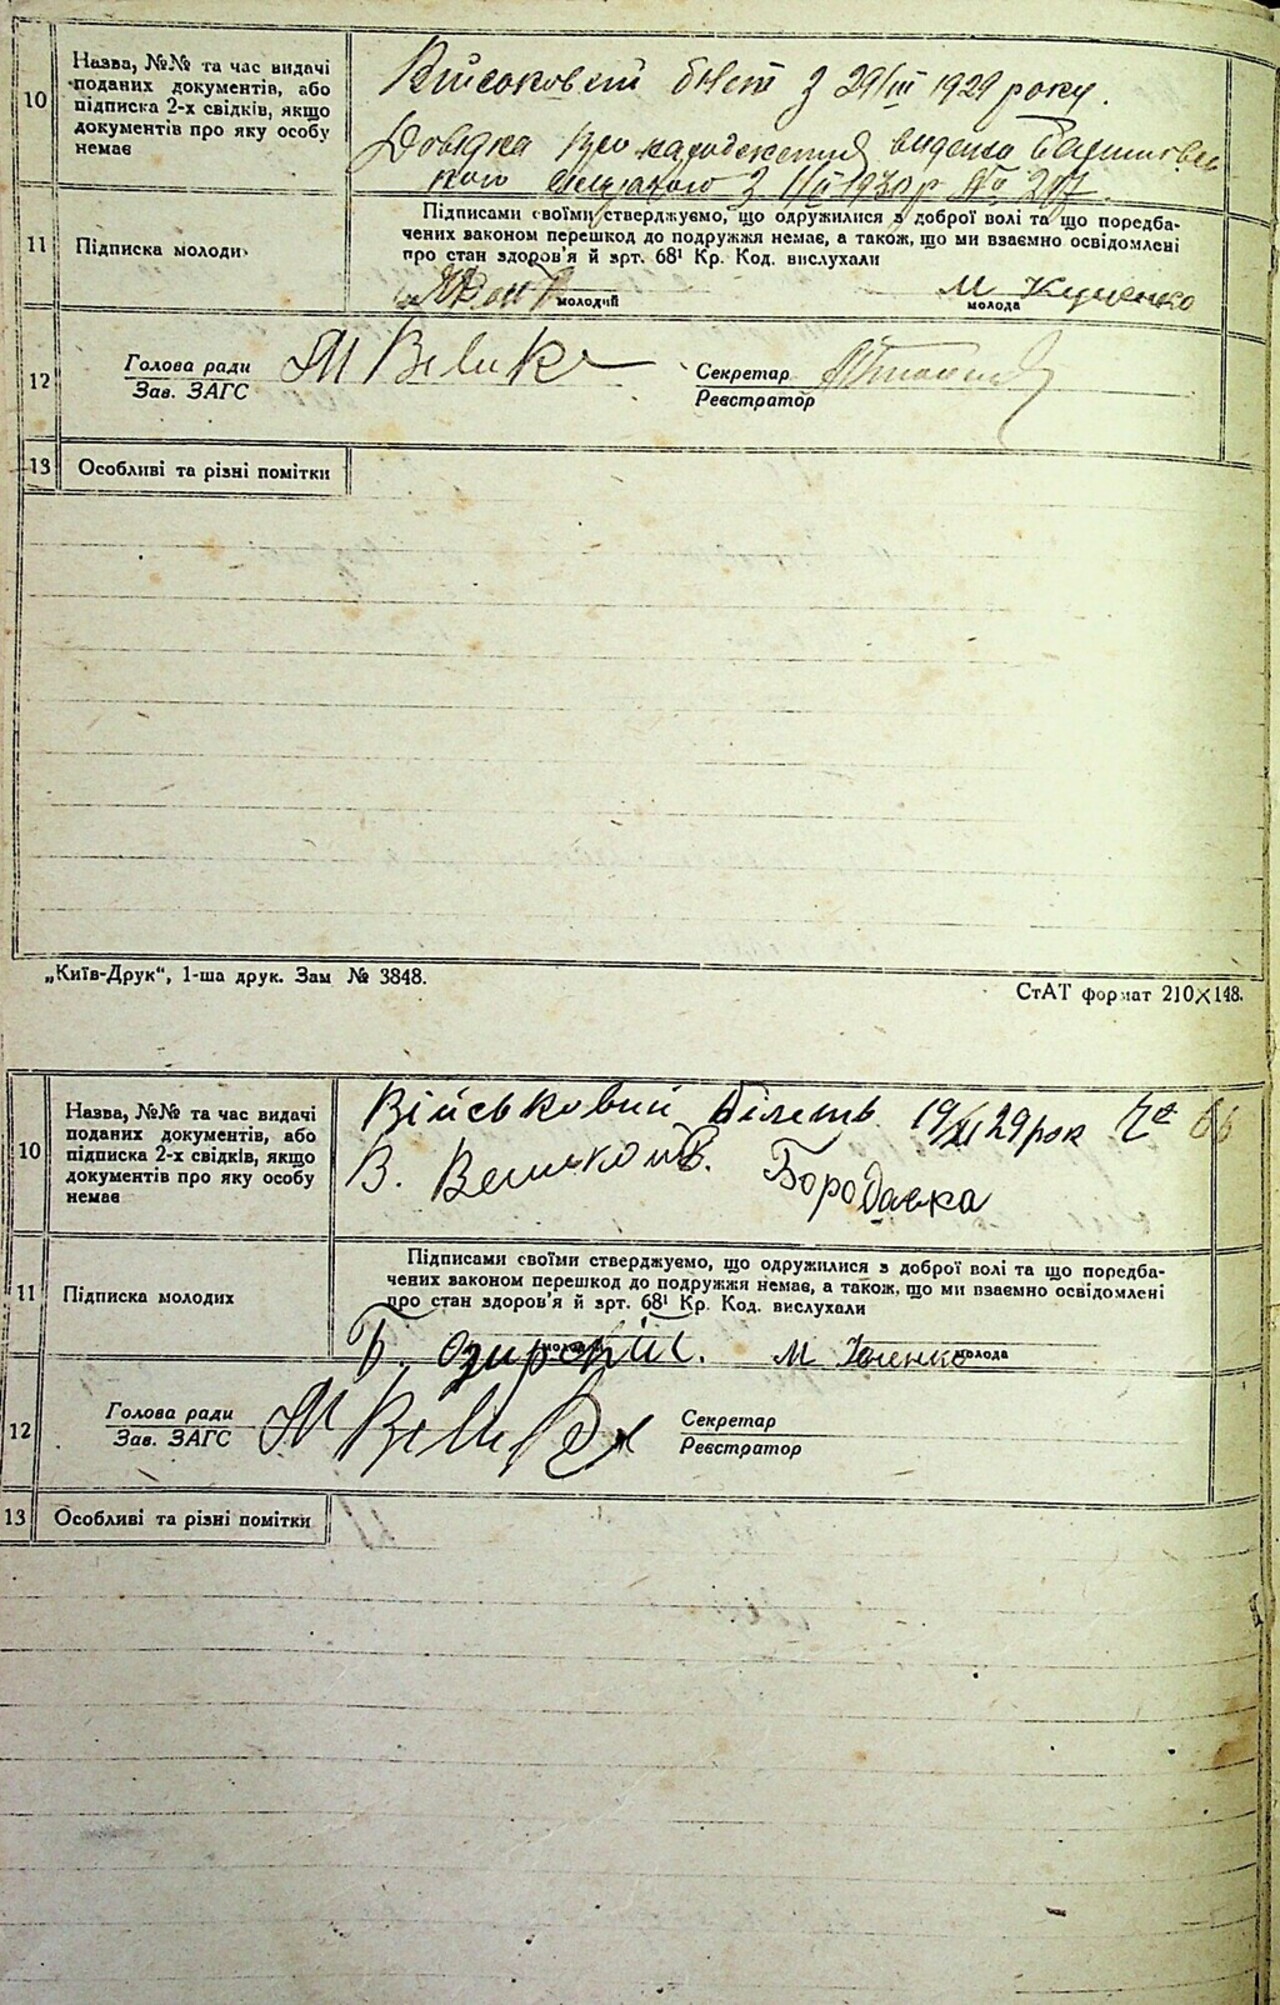 10
Назва, №№ та час видачі
поданих документів, або
підписка 2-х свідків, якщо
документів про яку особу
немає
Військовий білет з 29/III 1929 року.
Довідка про народження видана
з 1930 р № 207
11
Підписка молоди
Підписами своїми стверджуємо, що одружилися з доброї волі та що передба-
чених законом перешкод до подружжя немає, а також, що ми взаємно освідомлені
про стан здоров'я й арт. 68¹ Кр. Код. вислухали
молодий
М Куценко
молода
12
Голова ради
Зав. ЗАГС
М Велик
Секретар
Реєстратор
13
Особливі та різні помітки
„Київ-Друк“, 1-ша друк. Зам № 3848.
СтАТ формат 210×148.
10
Назва, №№ та час видачі
поданих документів, або
підписка 2-х свідків, якщо
документів про яку особу
немає
Військовий білеть 19/XI 29 рок № 66
В. В. Бородавка
11
Підписка молодих
Підписами своїми стверджуємо, що одружилися з доброї волі та що передба-
чених законом перешкод до подружжя немає, а також, що ми взаємно освідомлені
про стан здоров'я й арт. 68¹ Кр. Код. вислухали
М
молода
12
Голова ради
Зав. ЗАГС
М Велик
Секретар
Реєстратор
13
Особливі та різні помітки